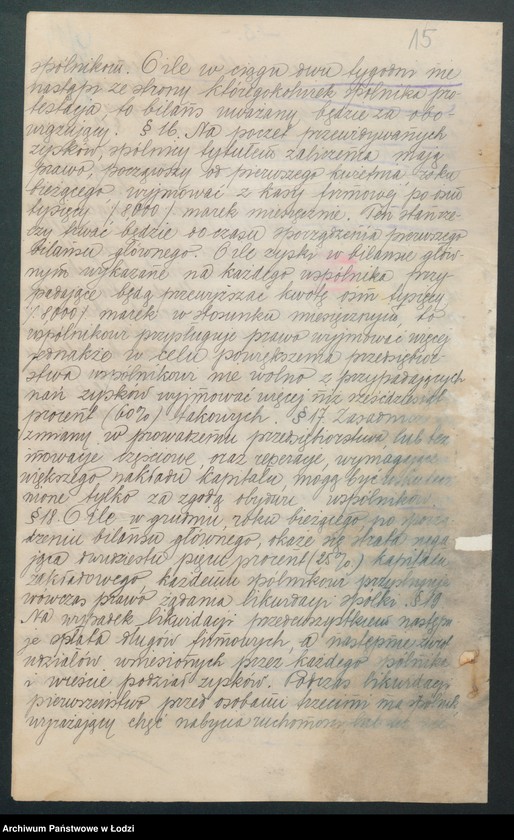 15
spólnikom. O ile w ciągu dwu tygodni nie
nastąpi ze strony któregokolwiek spólnika pro-
testacja, to bilans uważany będzie za obo-
wiązujący. § 16. Na poczet przewidywanych
zysków, spólnicy tytułem zaliczenia mają
prawo, począwszy od pierwszego kwietnia roku
bieżącego wyjmować z kasy firmowej po osiem
tysięcy /8000/ marek miesięcznie. Ten stan rze-
czy trwać będzie do czasu sporządzenia pierwszego
bilansu głównego. O ile zyski w bilansie głów-
nym wykazane na każdego wspólnika przy-
padające będą przewyższać kwotę osiem tysięcy
/8000/ marek w stosunku miesięcznym, to
wspólnikowi przysługuje prawo wyjmować więcej
jednakże w celu powiększenia przedsiębior-
stwa wspólnikowi nie wolno z przypadających
nań zysków wyjmować więcej niż sześćdziesiąt
procent (60%) takowych. § 17 Zasadnicze
zmiany w prowadzeniu przedsiębiorstwa, lub
mowacje częściowe, oraz reperacje, wymagające
większego nakładu kapitału, mogą być
nione tylko za zgodą obydwu wspólników.
§ 18. O ile w grudniu, roku bieżącego, po sporzą-
dzeniu bilansu głównego, okaże się strata
jąca dwadzieścia pięć procent (25%) kapitału
zakładowego, każdemu spólnikowi przysługuje
wówczas prawo żądania likwidacji spółki. § 19
Na wypadek likwidacji przedewszystkiem następu-
je spłata długów firmowych, a następnie zwrot
udziałów, wniesionych przez każdego spólnika
i wreście podział zysków. Podczas likwidacji
pierwszeństwo przed osobami trzeciemi ma spólnik,
wyrażający chęć nabycia ruchomości
Archiwum Państwowe w Łodzi
szukajwarchiwach.gov.pl